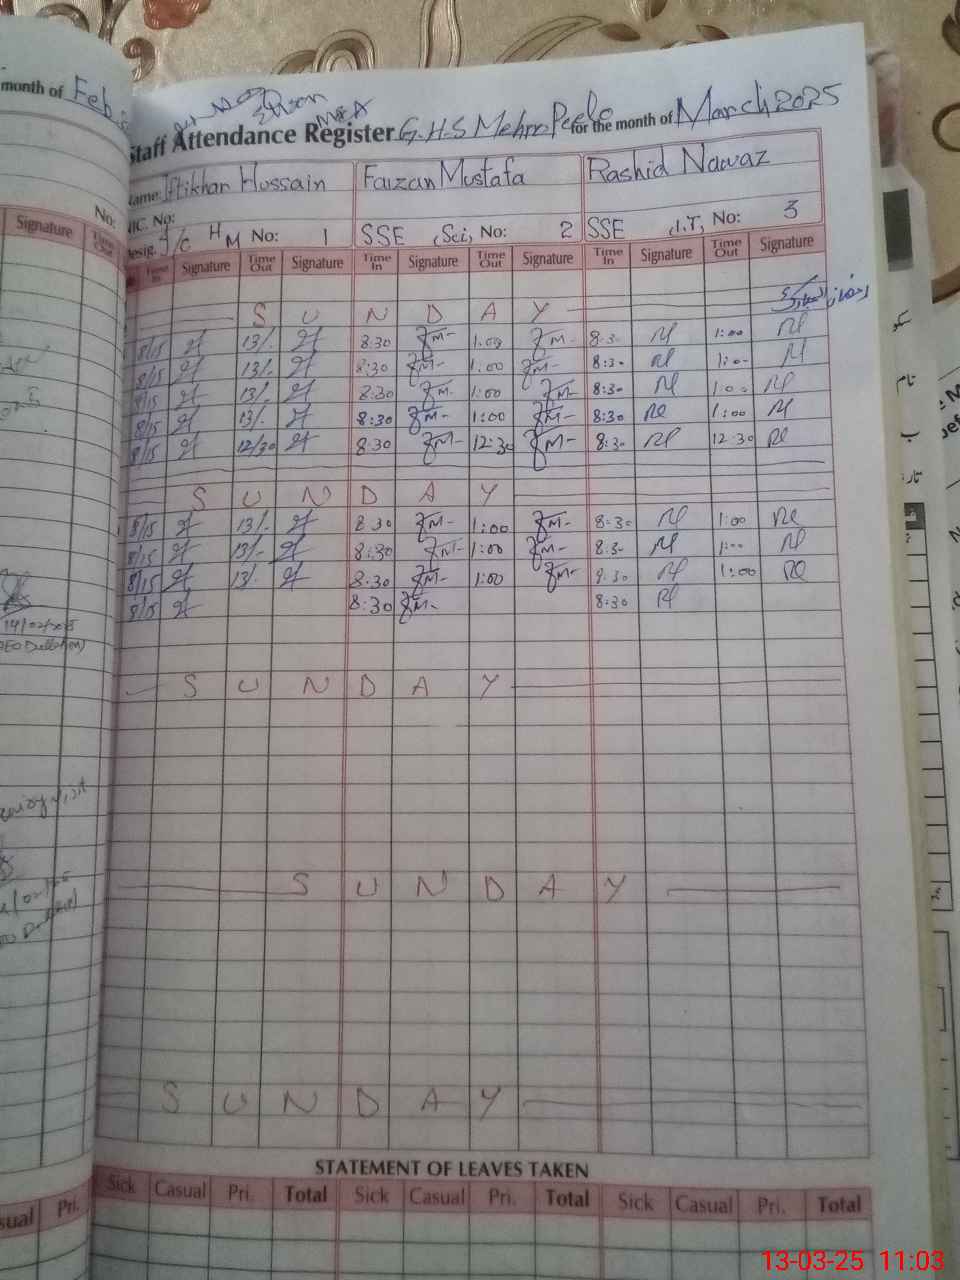 month of Feb
Staff Attendance Register G.H.S Mehra Peelo for the month of March, 2025
Name: Iftikhar Hussain Faizan Mustafa Rashid Nawaz
NIC. No:
Desig. I/C HM No: 1 SSE (Sci) No: 2 SSE (I.T) No: 3
Signature No: Time Out
Time In Signature Time Out Signature Time In Signature Time Out Signature Time In Signature Time Out Signature
S U N D A Y
8/15 13/- 8:30 FM- 1:00 FM- 8:30 1:00
8/15 13/- 8:30 FM- 1:00 FM- 8:30 1:00
8/15 13/- 8:30 FM- 1:00 FM- 8:30 1:00
8/15 13/- 8:30 FM- 1:00 FM- 8:30 1:00
8/15 12/30 8:30 FM- 12:30 FM- 8:30 12:30
S U N D A Y
8/15 13/- 8:30 FM- 1:00 FM- 8:30 1:00
8/15 13/- 8:30 FM- 1:00 FM- 8:30 1:00
8/15 13/- 8:30 FM- 1:00 FM- 8:30 1:00
8/15 8:30 FM- 8:30
14/02/2025
S U N D A Y
S U N D A Y
S U N D A Y
STATEMENT OF LEAVES TAKEN
Sick Casual Pri. Total Sick Casual Pri. Total Sick Casual Pri. Total
Pri.
13-03-25 11:03